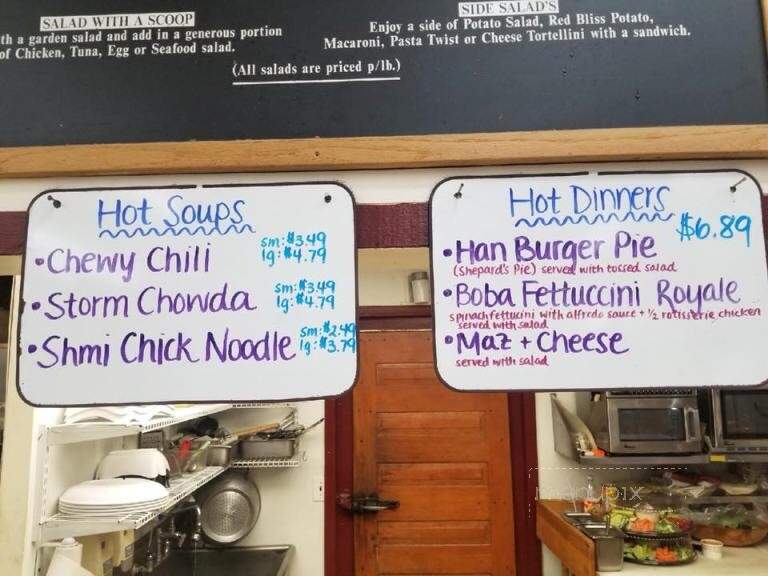 SALAD WITH A SCOOP
th a garden salad and add in a generous portion
of Chicken, Tuna, Egg or Seafood salad.
SIDE SALAD'S
Enjoy a side of Potato Salad, Red Bliss Potato,
Macaroni, Pasta Twist or Cheese Tortellini with a sandwich.
(All salads are priced p/lb.)
Hot Soups
• Chewy Chili
sm: $3.49
lg: $4.79
• Storm Chowda
sm: $3.49
lg: $4.79
• Shmi Chick Noodle
sm: $2.49
lg: $3.79
Hot Dinners
$6.89
• Han Burger Pie
(Shepard's Pie) served with tossed salad
• Boba Fettuccini Royale
spinach fettucini with alfredo sauce + 1/2 rotisserie chicken
served with salad
• Maz + Cheese
served with salad